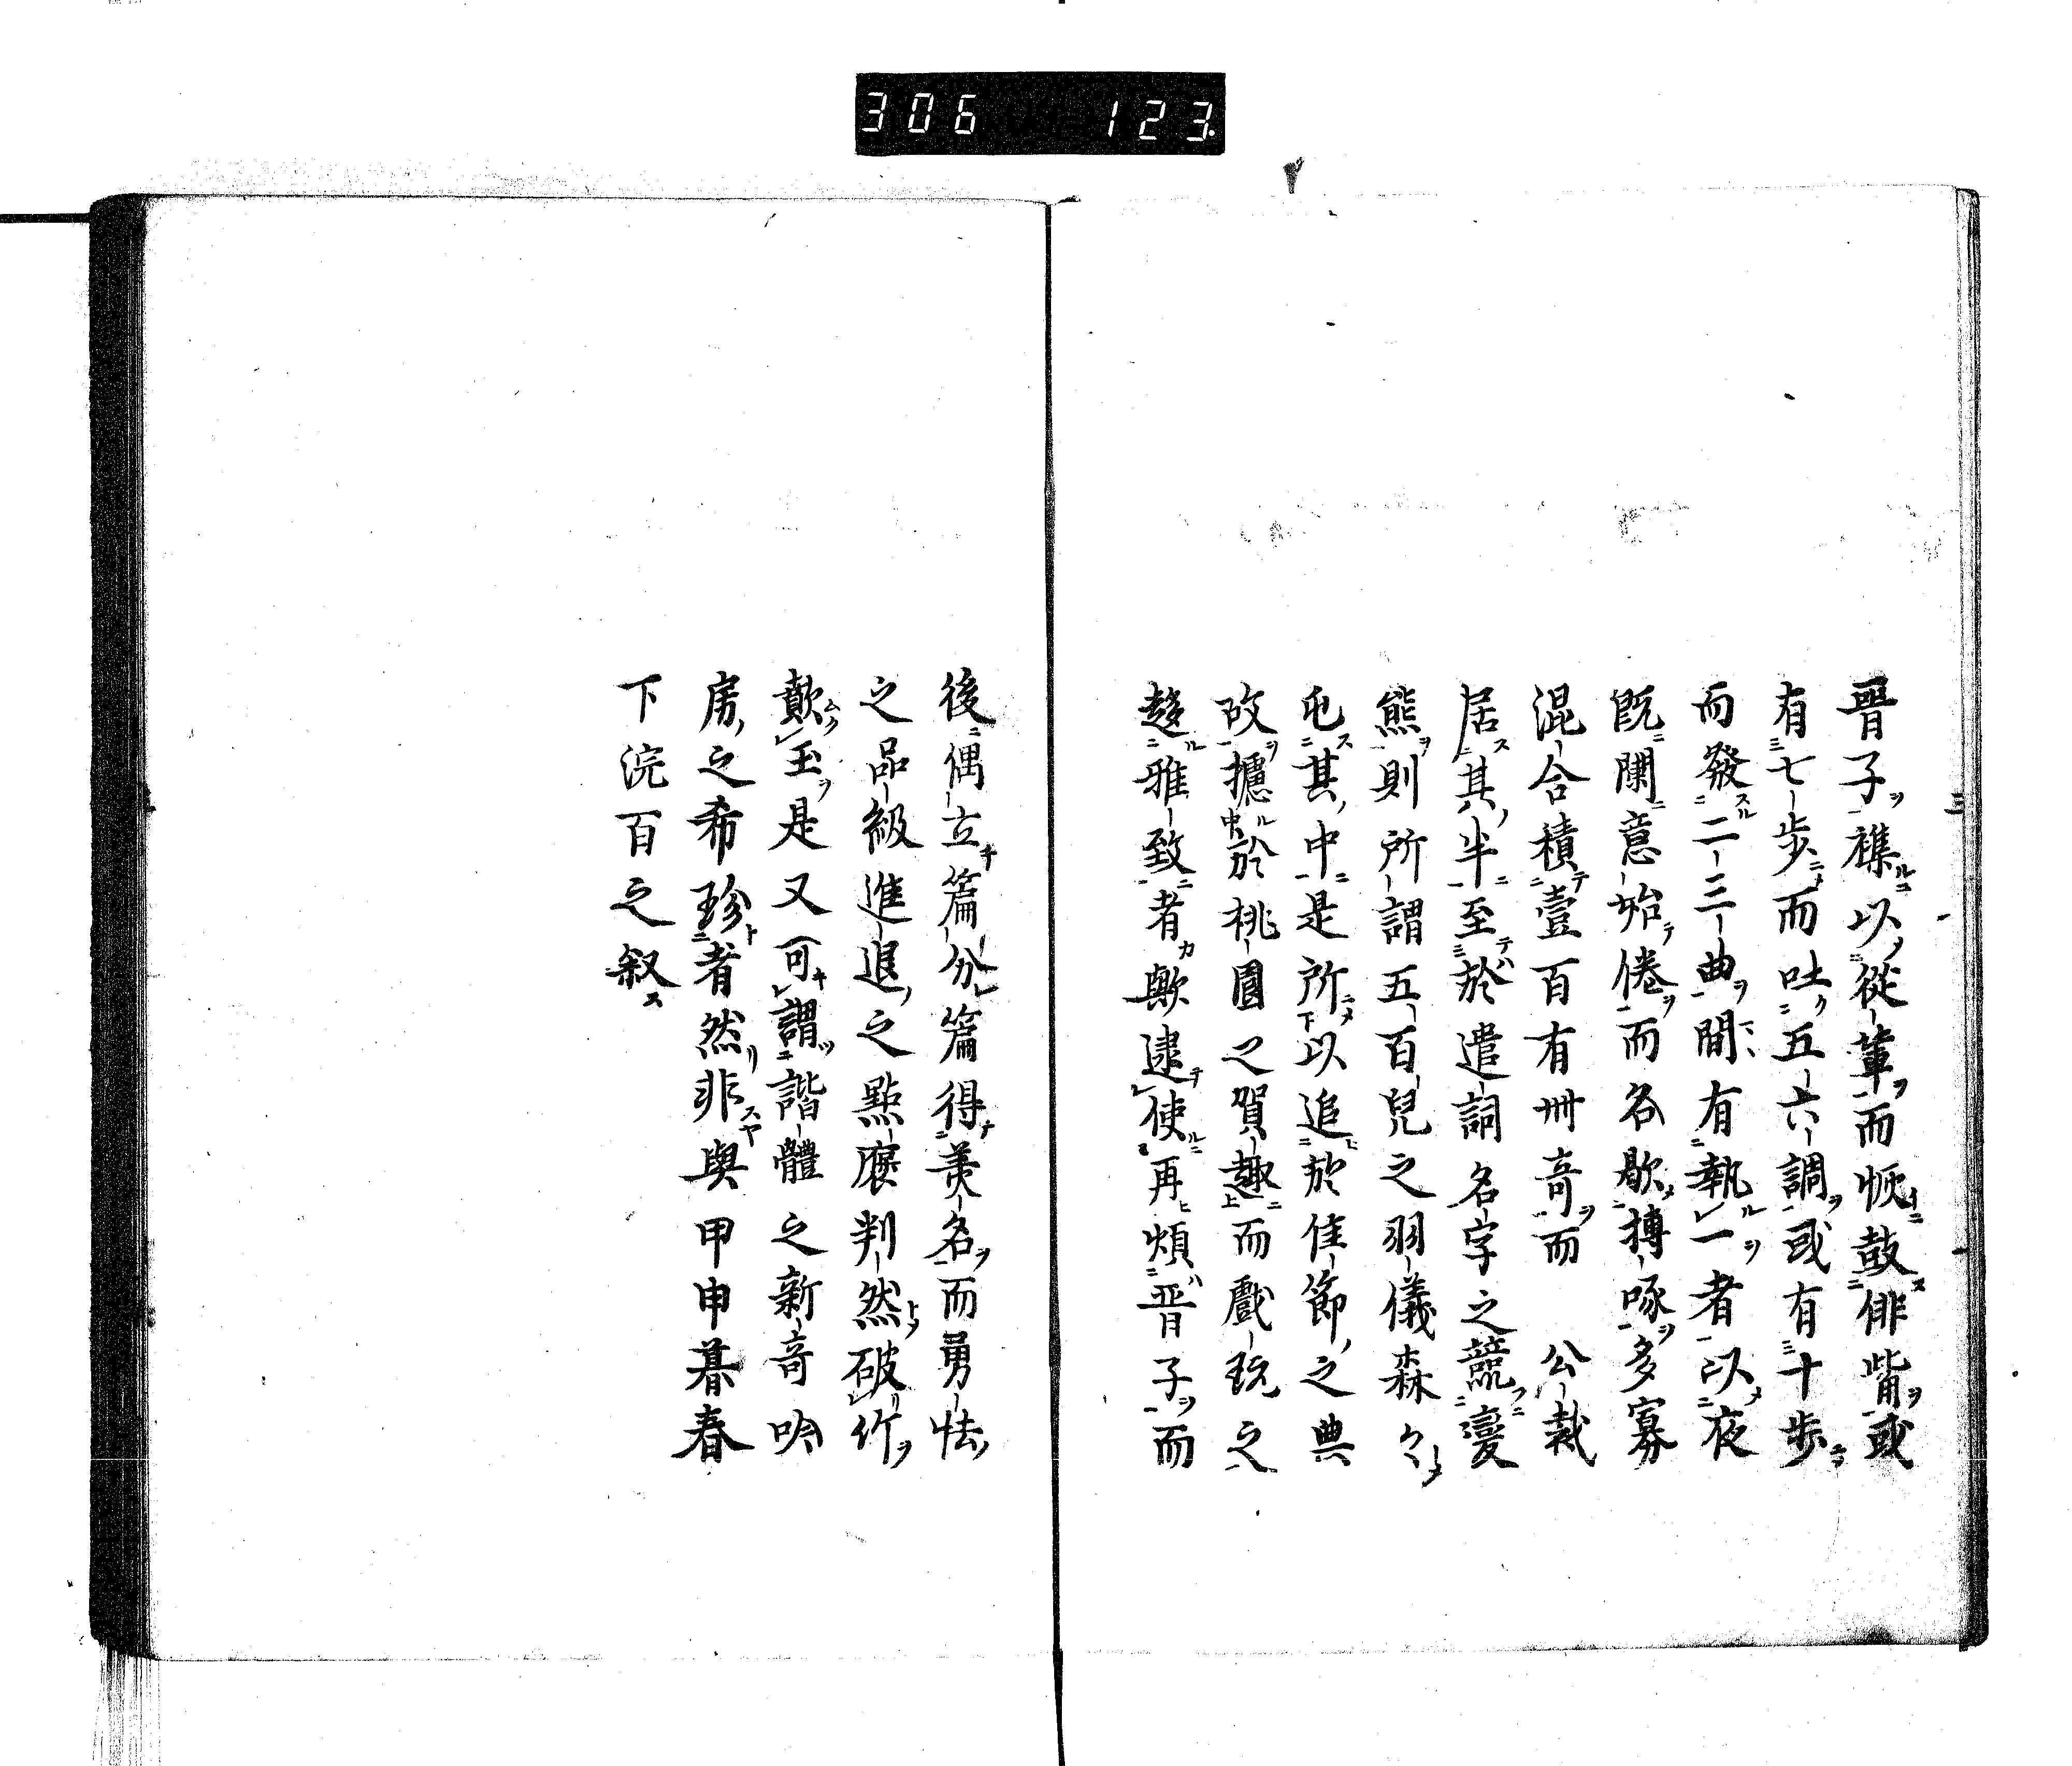 306 123
晋子襍以從輩而恢鼓俳觜或
有七歩而吐五六調或有十歩
而發二三曲間有執一者以夜
既闌意始倦而名歇摶啄多寡
混合積壹百有卌竒而 公裁
居其半至於遣詞名字之競
熊則所謂五百兒之羽儀森々
屯其中是所以追於佳節之典
故攄於桃園之賀趣而戲玩之
趍雅致者歟逮使再煩晋子而
後偶立篇分篇得美名而勇怯
之品級進退之點褒判然破竹
歎玉是又可謂諧體之新竒吟
房之希珍者然非與甲申暮春
下浣百之叙